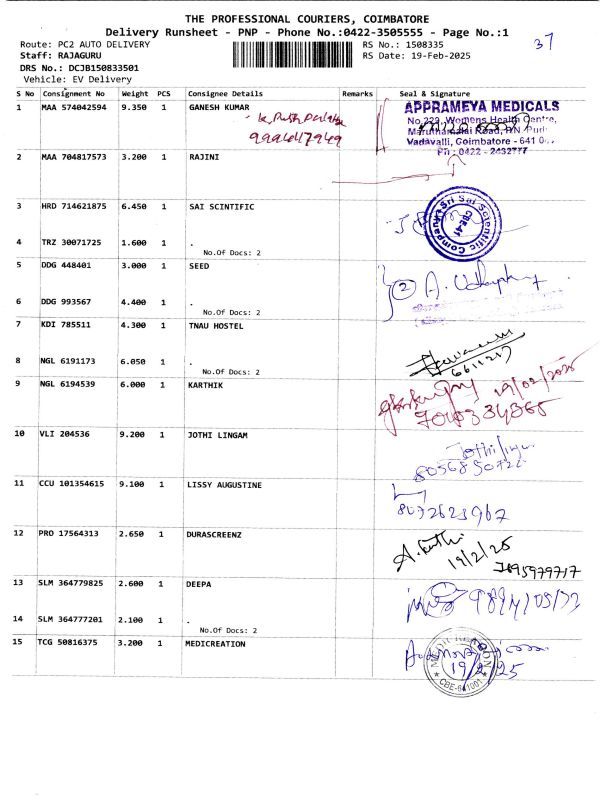 THE PROFESSIONAL COURIERS, COIMBATORE
Delivery Runsheet - PNP - Phone No.:0422-3505555 - Page No.:1
37
Route: PC2 AUTO DELIVERY
RS No.: 1508335
Staff: RAJAGURU
RS Date: 19-Feb-2025
DRS No.: DCJB150833501
Vehicle: EV Delivery
S No Consignment No Weight PCS Consignee Details Remarks Seal & Signature
1 MAA 574042594 9.350 1 GANESH KUMAR
9994647949
APPRAMEYA MEDICALS
No.229, Womens Health Centre,
Maruthamalai Road,
Vadavalli, Coimbatore - 641
Ph : 0422 - 2432777
2 MAA 704817573 3.200 1 RAJINI
3 HRD 714621875 6.450 1 SAI SCINTIFIC
Sri Sai Scientific Company
CBE-41
4 TRZ 30071725 1.600 1 .
No.Of Docs: 2
5 DDG 448401 3.000 1 SEED
2 A.
6 DDG 993567 4.400 1 .
No.Of Docs: 2
7 KDI 785511 4.300 1 TNAU HOSTEL
6611217
8 NGL 6191173 6.050 1 .
No.Of Docs: 2
9 NGL 6194539 6.000 1 KARTHIK
19/02/2025
10 VLI 204536 9.200 1 JOTHI LINGAM
11 CCU 101354615 9.100 1 LISSY AUGUSTINE
8072623967
12 PRO 17564313 2.650 1 DURASCREENZ
19/2/25
13 SLM 364779825 2.600 1 DEEPA
14 SLM 364777201 2.100 1 .
No.Of Docs: 2
15 TCG 50816375 3.200 1 MEDICREATION
19/2/25
CBE-641001